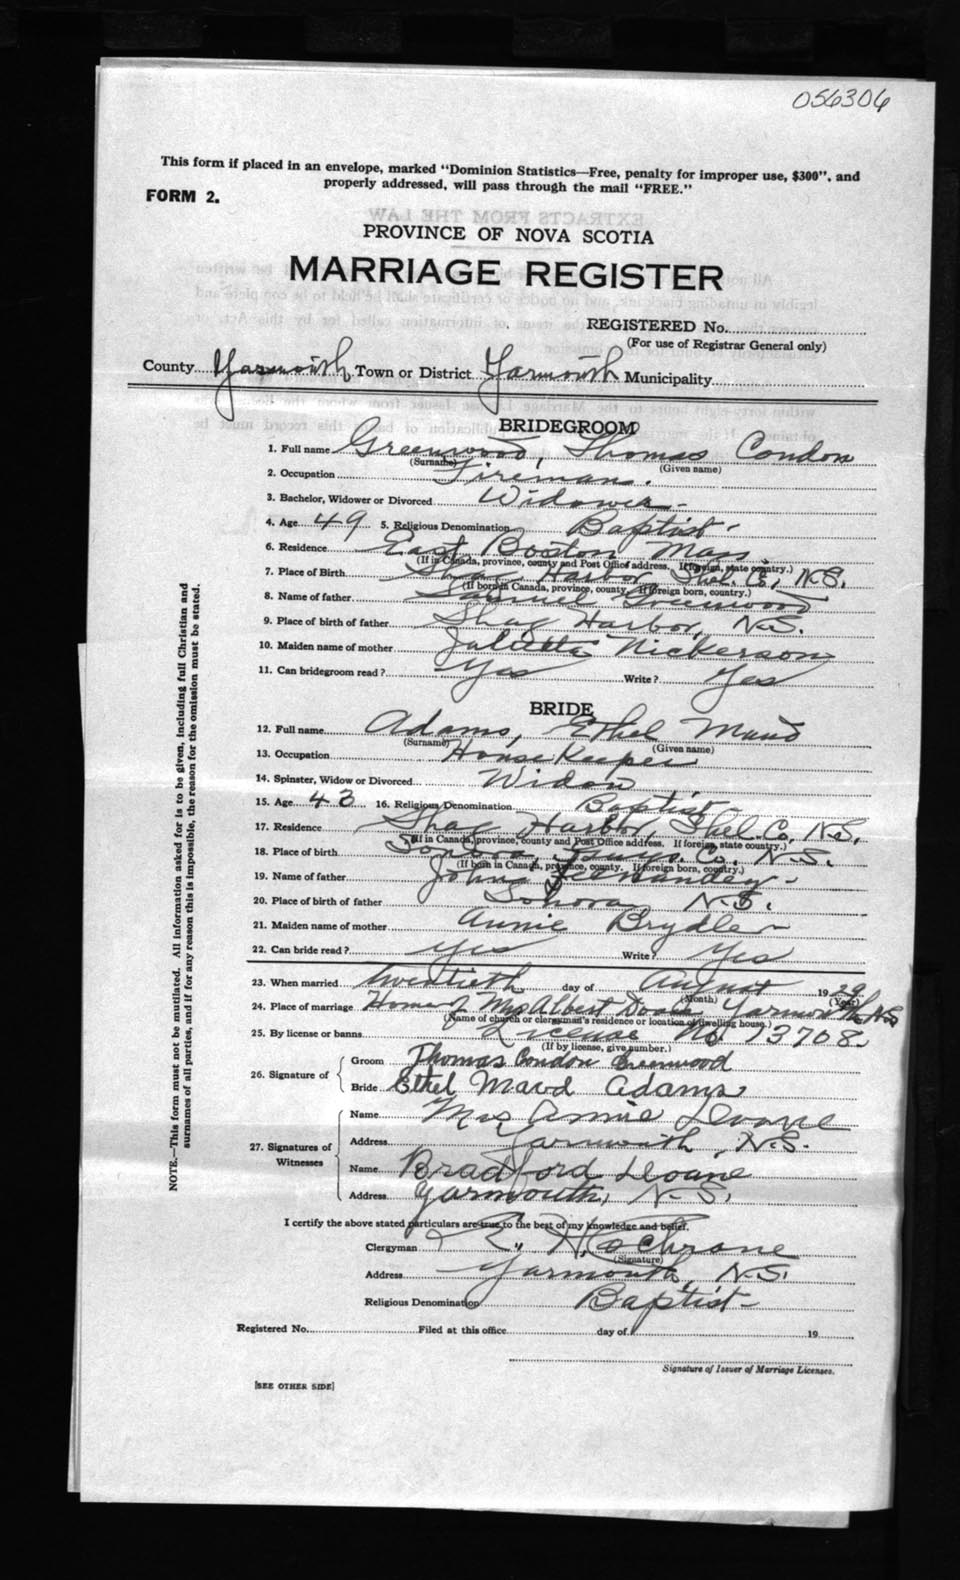 056306
This form if placed in an envelope, marked "Dominion Statistics—Free, penalty for improper use, $300", and
properly addressed, will pass through the mail "FREE."
FORM 2.
PROVINCE OF NOVA SCOTIA
MARRIAGE REGISTER
REGISTERED No.
(For use of Registrar General only)
County Yarmouth Town or District Yarmouth Municipality
BRIDEGROOM
1. Full name Greenwood, Thomas Condon
(Surname) (Given name)
2. Occupation Fireman.
3. Bachelor, Widower or Divorced Widower
4. Age 49 5. Religious Denomination Baptist
6. Residence East Boston Mass.
(If in Canada, province, county and Post Office address. If foreign, state country.)
7. Place of Birth Shag Harbor, Shel. Co., N.S.
(If born in Canada, province, county. If foreign born, country.)
8. Name of father Samuel Greenwood
9. Place of birth of father Shag Harbor, N.S.
10. Maiden name of mother Nickerson
11. Can bridegroom read? Yes Write? Yes
BRIDE
12. Full name Adams, Ethel Maud
(Surname) (Given name)
13. Occupation House Keeper
14. Spinster, Widow or Divorced Widow
15. Age 43 16. Religious Denomination Baptist
17. Residence Shag Harbor, Shel. Co. N.S.
(If in Canada, province, county and Post Office address. If foreign, state country.)
18. Place of birth Co. N.S.
(If born in Canada, province, county. If foreign born, country.)
19. Name of father John
20. Place of birth of father N.S.
21. Maiden name of mother Annie
22. Can bride read? Yes Write? Yes
23. When married Twentieth day of August 1929
(Month) (Year)
24. Place of marriage Home of Mrs Albert Doane Yarmouth, N.S.
(Name of church or clergyman's residence or location of dwelling house.)
25. By license or banns License No. 13708
(If by license, give number.)
26. Signature of Groom Thomas Condon Greenwood
Bride Ethel Maud Adams
27. Signatures of Witnesses Name Mrs Annie Doane
Address Yarmouth, N.S.
Name Bradford Doane
Address Yarmouth, N.S.
I certify the above stated particulars are true to the best of my knowledge and belief.
Clergyman H. Cochrane
(Signature)
Address Yarmouth, N.S.
Religious Denomination Baptist
Registered No. Filed at this office day of 19
Signature of Issuer of Marriage Licenses.
[SEE OTHER SIDE]
NOTE.—This form must not be mutilated. All information asked for is to be given, including full Christian and
surnames of all parties, and if for any reason this is impossible, the reason for the omission must be stated.